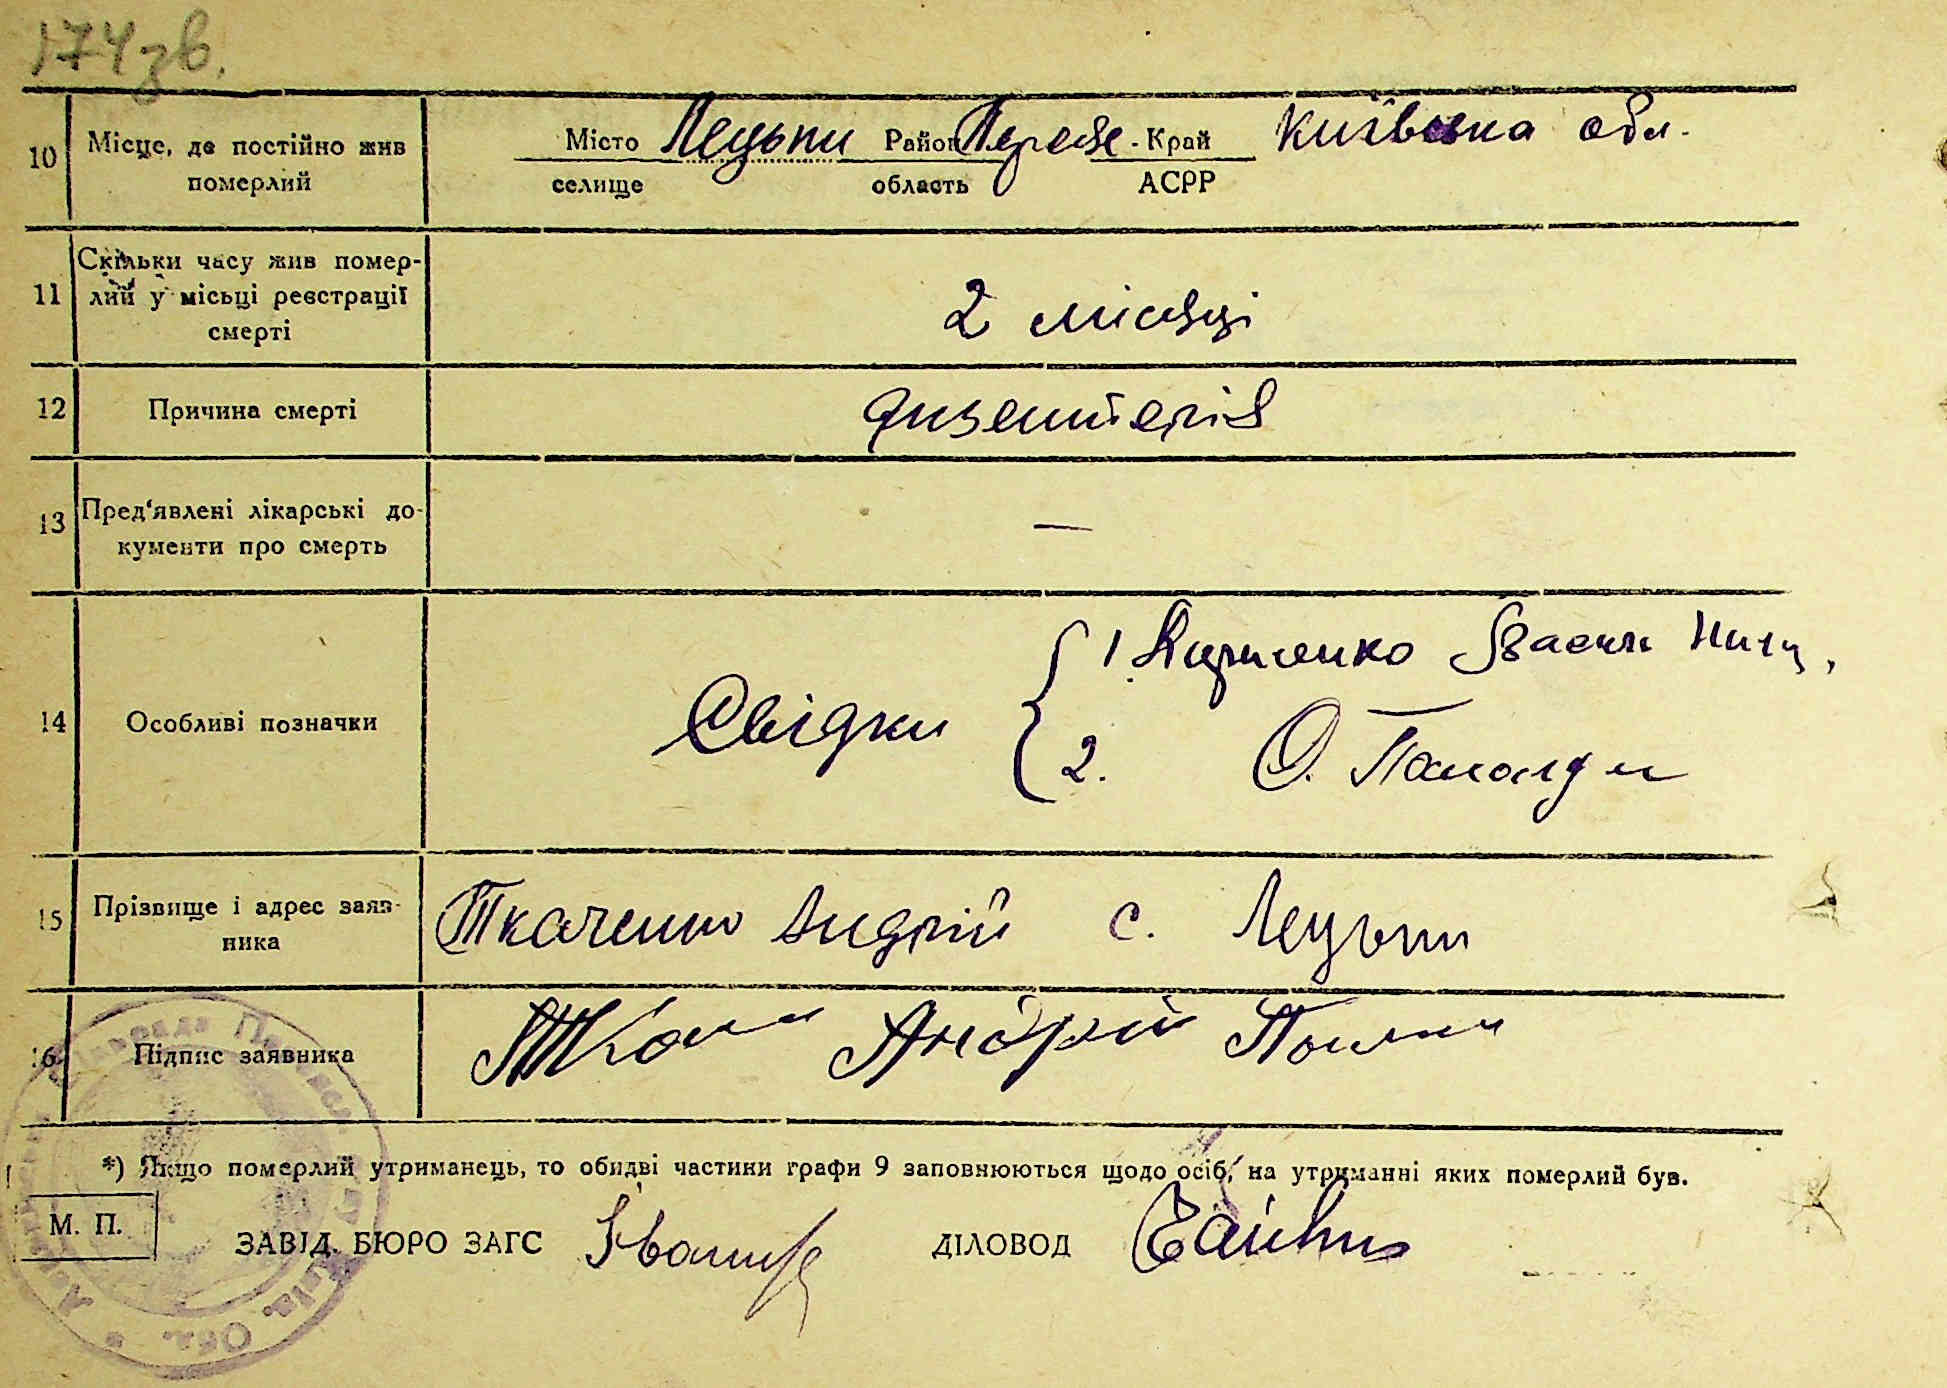 174зв.
10 Місце, де постійно жив померлий
Місто Лецьки Район Переяс. Край Київська обл.
селище область АСРР
11 Скільки часу жив помер-
лий у місьці реєстрації
смерті
2 місяці
12 Причина смерті
дизентерія
13 Пред'явлені лікарські до-
кументи про смерть
—
14 Особливі позначки
Свідки
1. Кириченко
2. О.
15 Прізвище і адрес заяв-
ника
Ткаченко Андрій с. Лецьки
16 Підпис заявника
Ткач Андрій
*) Якщо померлий утриманець, то обидві частини графи 9 заповнюються щодо осіб, на утриманні яких померлий був.
М. П.
ЗАВІД. БЮРО ЗАГС ДІЛОВОД